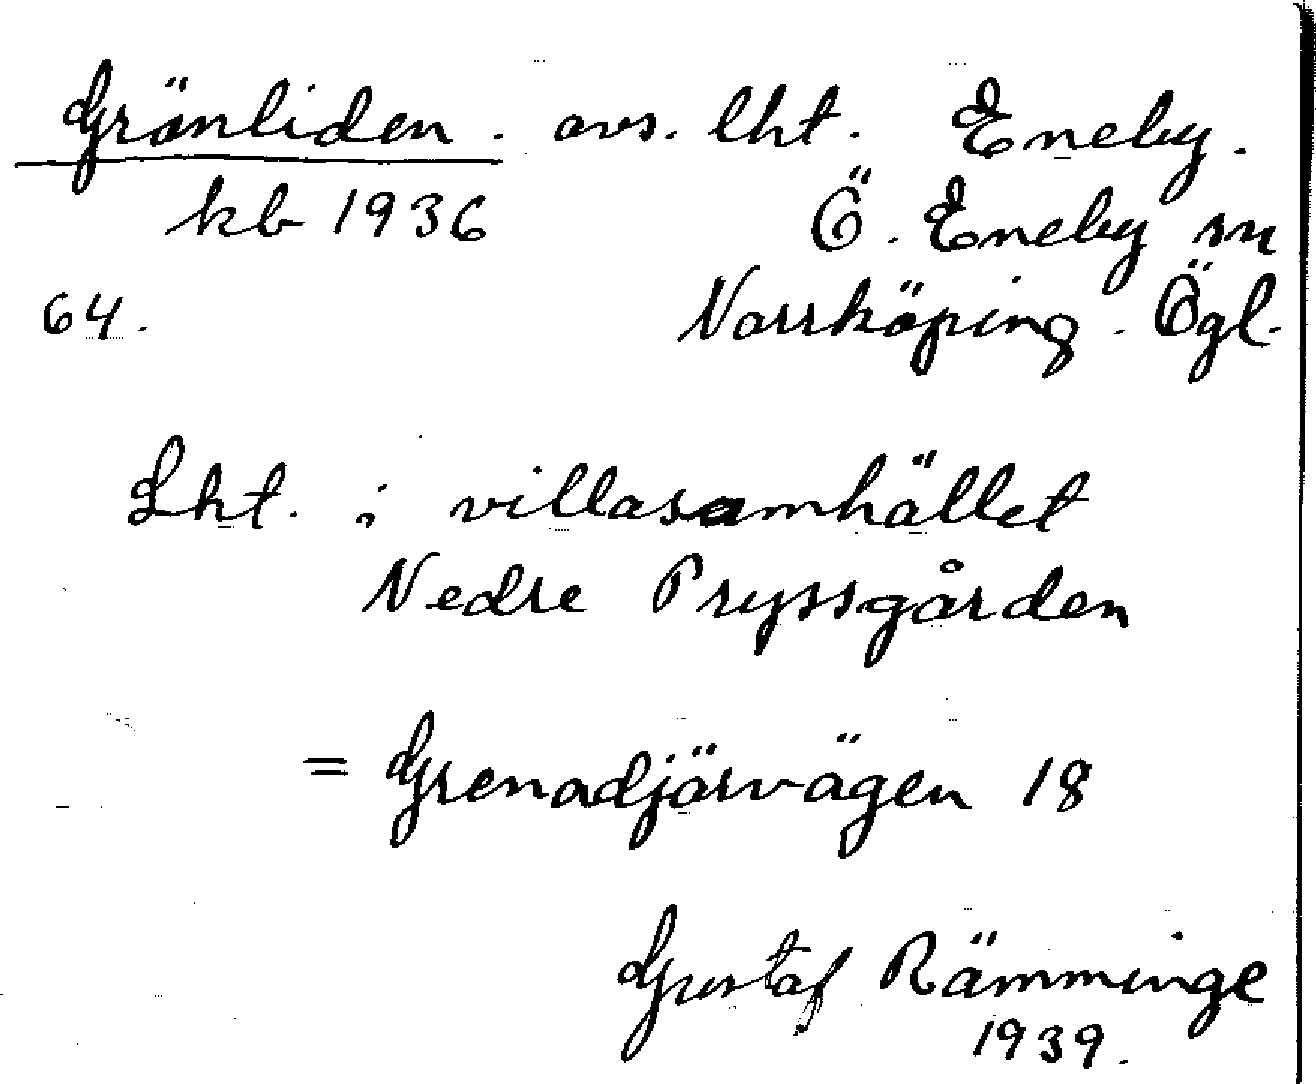 Grönliden. avs. lht. Eneby.
kb 1936 Ö. Eneby sn
64. Norrköping. Ögl.
Lht. i villasamhället
Nedre Pryssgården
= Grenadjärvägen 18
Gustaf Rämminge
1939.